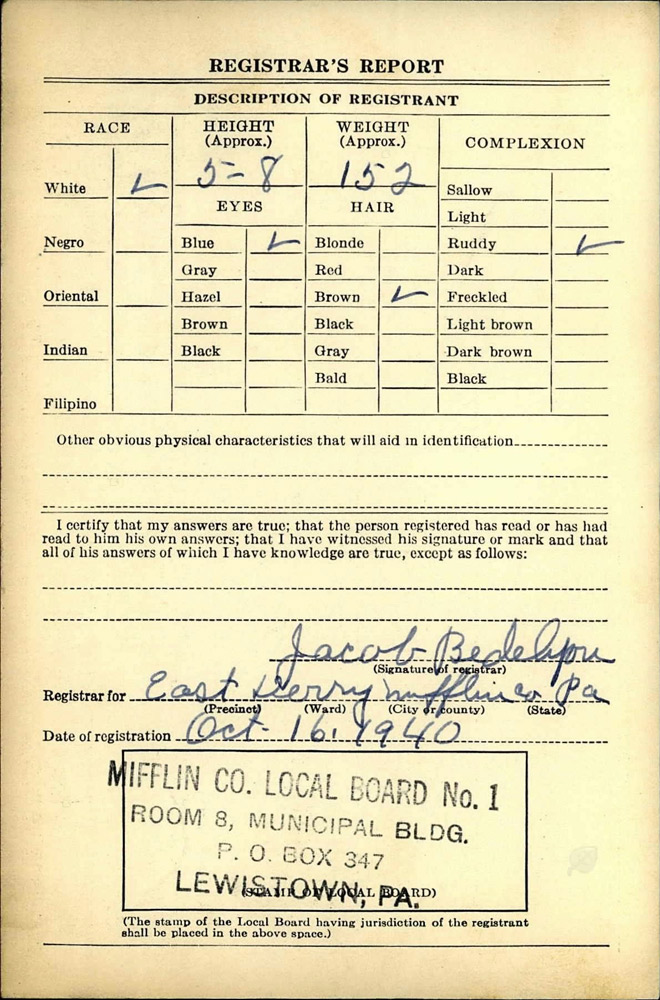 REGISTRAR'S REPORT
DESCRIPTION OF REGISTRANT
RACE
HEIGHT
(Approx.)
WEIGHT
(Approx.)
COMPLEXION
White ✓
5-8
152
Sallow
EYES
HAIR
Light
Negro
Blue ✓
Blonde
Ruddy ✓
Gray
Red
Dark
Oriental
Hazel
Brown ✓
Freckled
Brown
Black
Light brown
Indian
Black
Gray
Dark brown
Bald
Black
Filipino
Other obvious physical characteristics that will aid in identification
I certify that my answers are true; that the person registered has read or has had
read to him his own answers; that I have witnessed his signature or mark and that
all of his answers of which I have knowledge are true, except as follows:
Jacob
(Signature of registrar)
Registrar for East Derry Mifflin co Pa
(Precinct) (Ward) (City or county) (State)
Date of registration Oct- 16, 1940
MIFFLIN CO. LOCAL BOARD No. 1
ROOM 8, MUNICIPAL BLDG.
P. O. BOX 347
LEWISTOWN, PA.
(STAMP OF LOCAL BOARD)
(The stamp of the Local Board having jurisdiction of the registrant
shall be placed in the above space.)